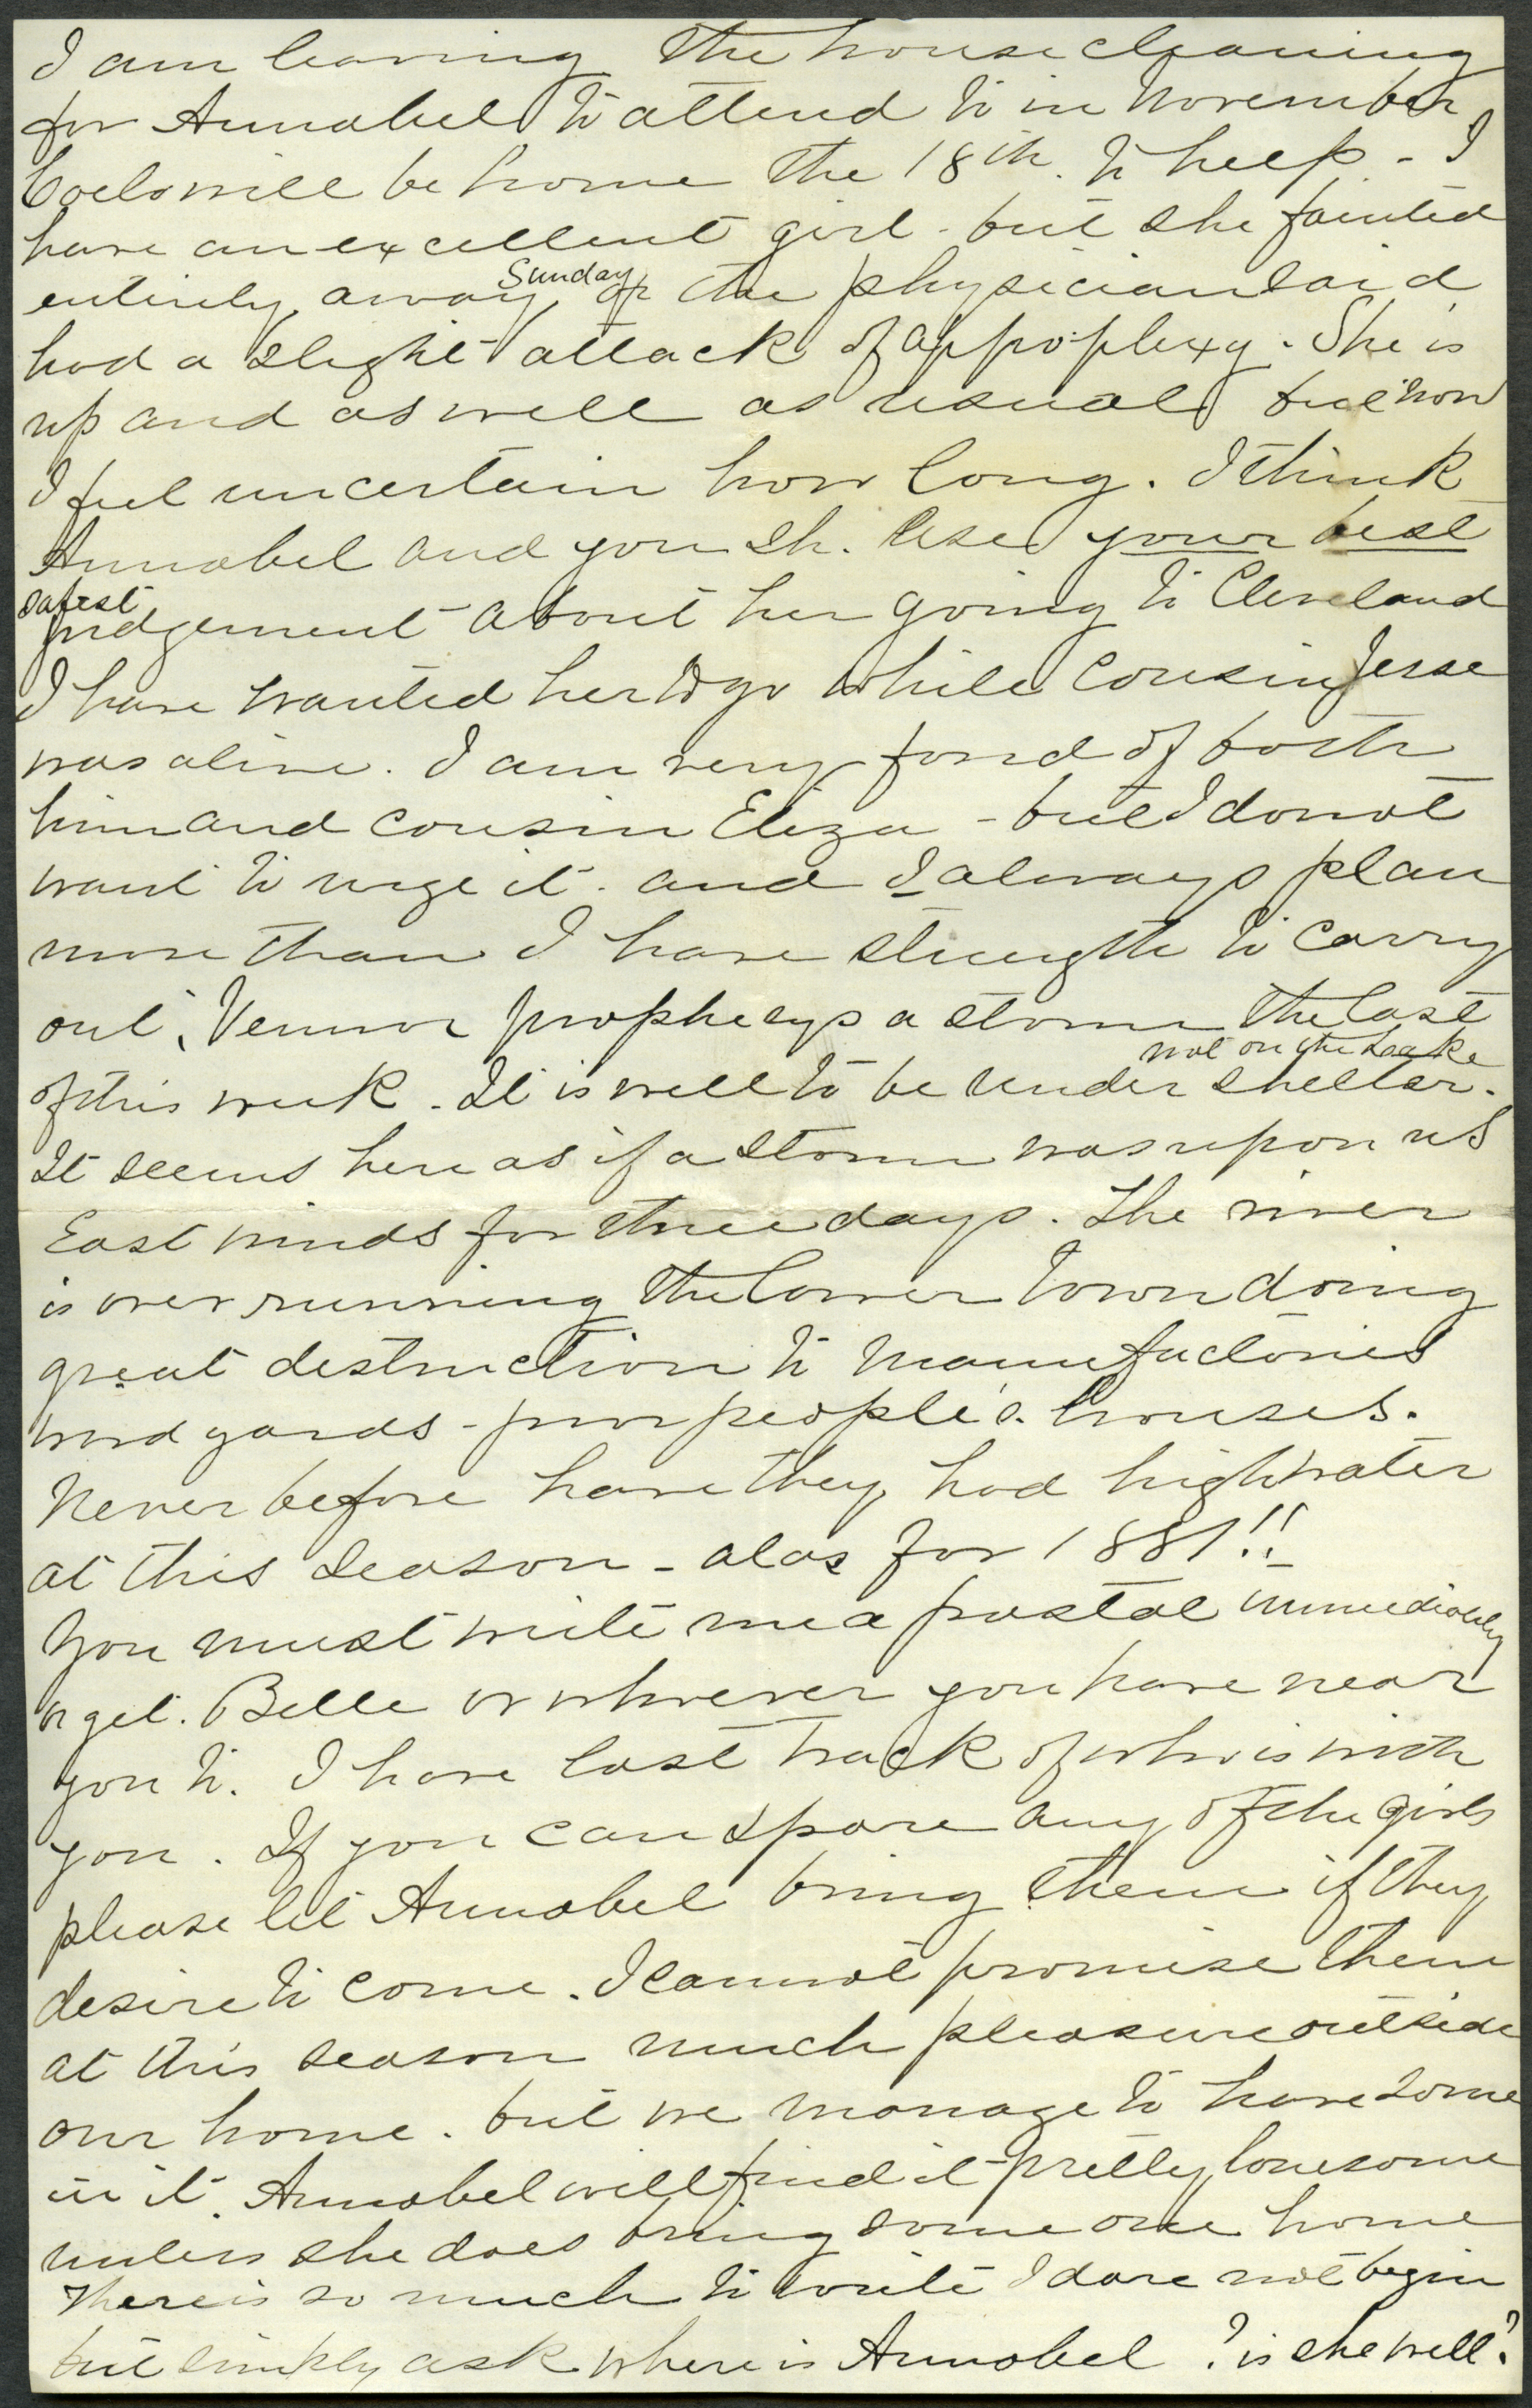 I am leaving the house cleaning
for Annabel to attend to in November
will be home the 18th. to help - I
have an excellent girl - but she fainted
entirely away Sunday or the physician said
had a slight attack of appo-plexy. She is
up and as well as usual but now
I feel uncertain how long. I think
Annabel and you sh. use your best
safest
judgement about her going to Cleveland
I have wanted her to go while Cousin Jesse
was alive. I am very fond of both
him and Cousin Eliza - but I do not
want to urge it. and I always plan
more than I have strength to carry
out. Vennor prophecys a storm the last
not on the Lake
of this week. It is well to be under shelter.
It seems here as if a storm was upon us
East winds for three days. The river
is over running the lower town doing
great destruction to manufactories
wood yards - poor people's houses.
Never before have they had high water
at this season - alas for 1881!!
You must write me a postal immediately
or get. Belle or whoever you have near
you to. I have lost track of who is with
you. If you can spare any of the girls
please let Annabel bring them if they
desire to come. I cannot promise them
at this season much pleasure outside
our home. but we manage to have some
in it. Annabel will find it pretty lonesome
unless she does bring some one home
There is so much to write I dare not begin
but simply ask where is Annabel? is she well?